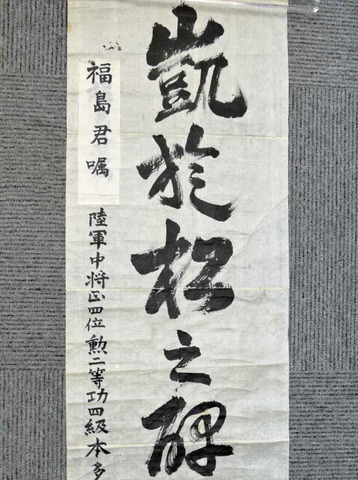 凱於松之碑
福島君嘱
陸軍中将正四位勲二等功四級本多